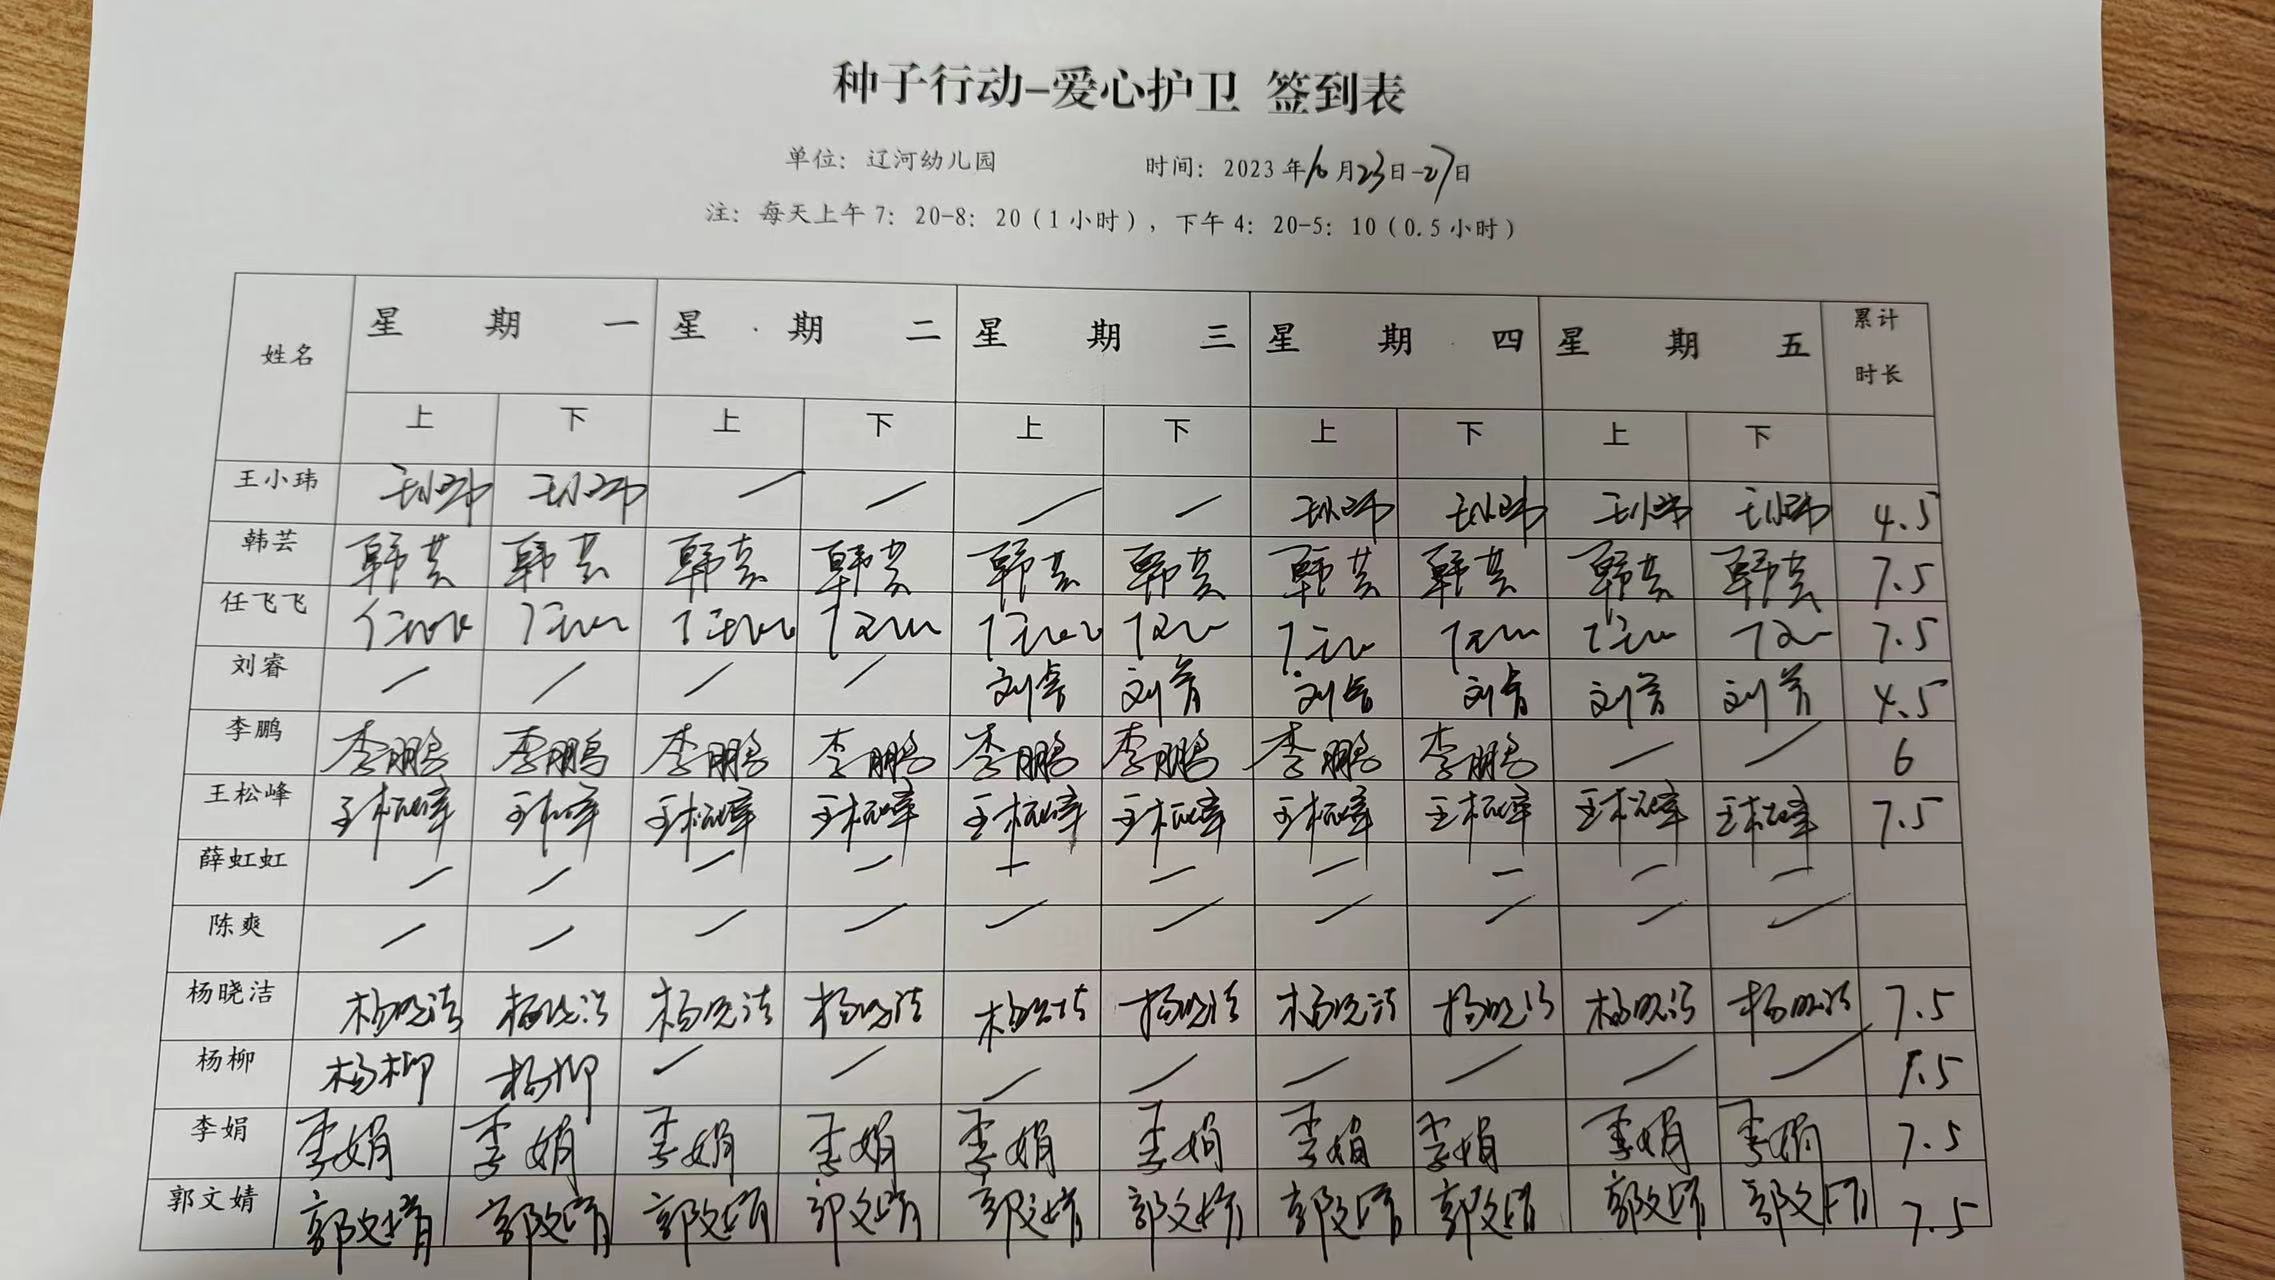 种子行动-爱心护卫 签到表
单位：辽河幼儿园 时间：2023年10月23日-27日
注：每天上午7：20-8：20（1小时），下午4：20-5：10（0.5小时）
姓名 星期一 星期二 星期三 星期四 星期五 累计时长
上 下 上 下 上 下 上 下 上 下
王小玮 王小玮 王小玮 / / / / 王小玮 王小玮 王小玮 王小玮 4.5
韩芸 韩芸 韩芸 韩芸 韩芸 韩芸 韩芸 韩芸 韩芸 韩芸 韩芸 7.5
任飞飞 7.5
刘睿 / / / / 刘睿 刘睿 刘睿 刘睿 刘睿 刘睿 4.5
李鹏 李鹏 李鹏 李鹏 李鹏 李鹏 李鹏 李鹏 李鹏 / / 6
王松峰 王松峰 王松峰 王松峰 王松峰 王松峰 王松峰 王松峰 王松峰 王松峰 王松峰 7.5
薛虹虹 / / / / / / / / / /
陈爽 / / / / / / / / / /
杨晓洁 杨晓洁 杨晓洁 杨晓洁 杨晓洁 杨晓洁 杨晓洁 杨晓洁 杨晓洁 杨晓洁 杨晓洁 7.5
杨柳 杨柳 杨柳 / / / / / / / / 1.5
李娟 李娟 李娟 李娟 李娟 李娟 李娟 李娟 李娟 李娟 李娟 7.5
郭文婧 郭文婧 郭文婧 郭文婧 郭文婧 郭文婧 郭文婧 郭文婧 郭文婧 郭文婧 郭文婧 7.5